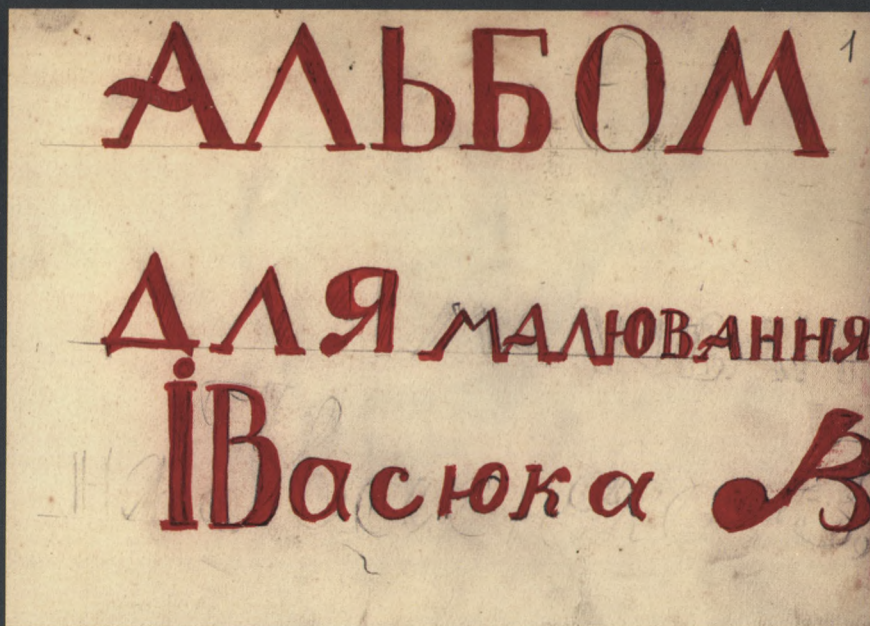 1
АЛЬБОМ
ДЛЯ МАЛЮВАННЯ
ІВасюка В